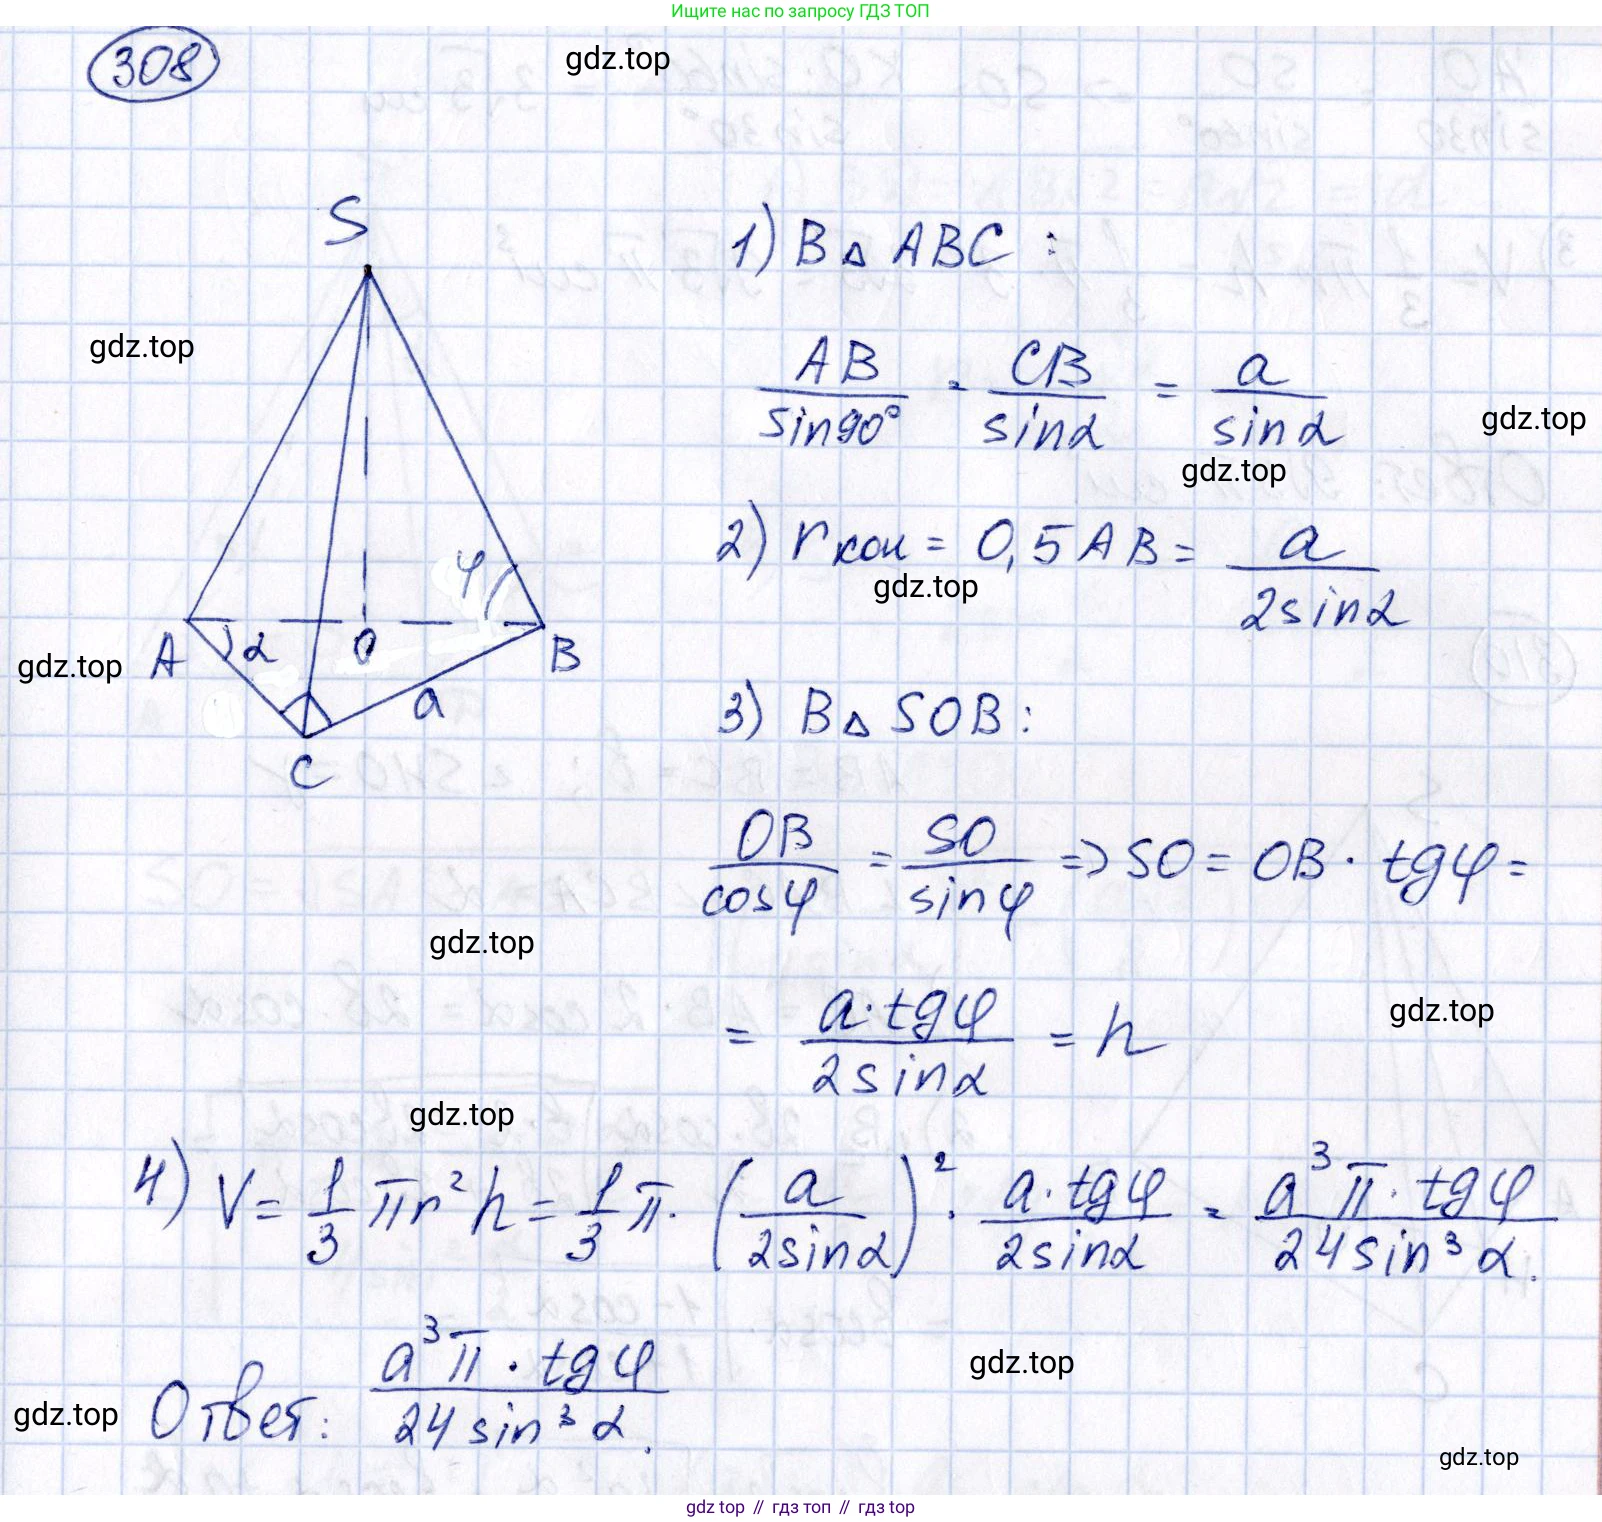 Ищите нас по запросу ГДЗ ТОП
308
gdz.top
S
1) В △ ABC :
gdz.top
AB/sin90° = CB/sinα = a/sinα
gdz.top
gdz.top
2) r кон = 0,5 AB = a/2sinα
gdz.top
φ
A α O B
gdz.top
a
C
3) В △ SOB :
OB/cosφ = SO/sinφ => SO = OB · tgφ =
gdz.top
= a·tgφ/2sinα = h
gdz.top
gdz.top
4) V = 1/3 πr²h = 1/3 π · (a/2sinα)² · a·tgφ/2sinα = a³π·tgφ/24sin³α.
gdz.top
Ответ: a³π·tgφ/24sin³α.
gdz.top
gdz.top
gdz top // гдз топ // gdz top